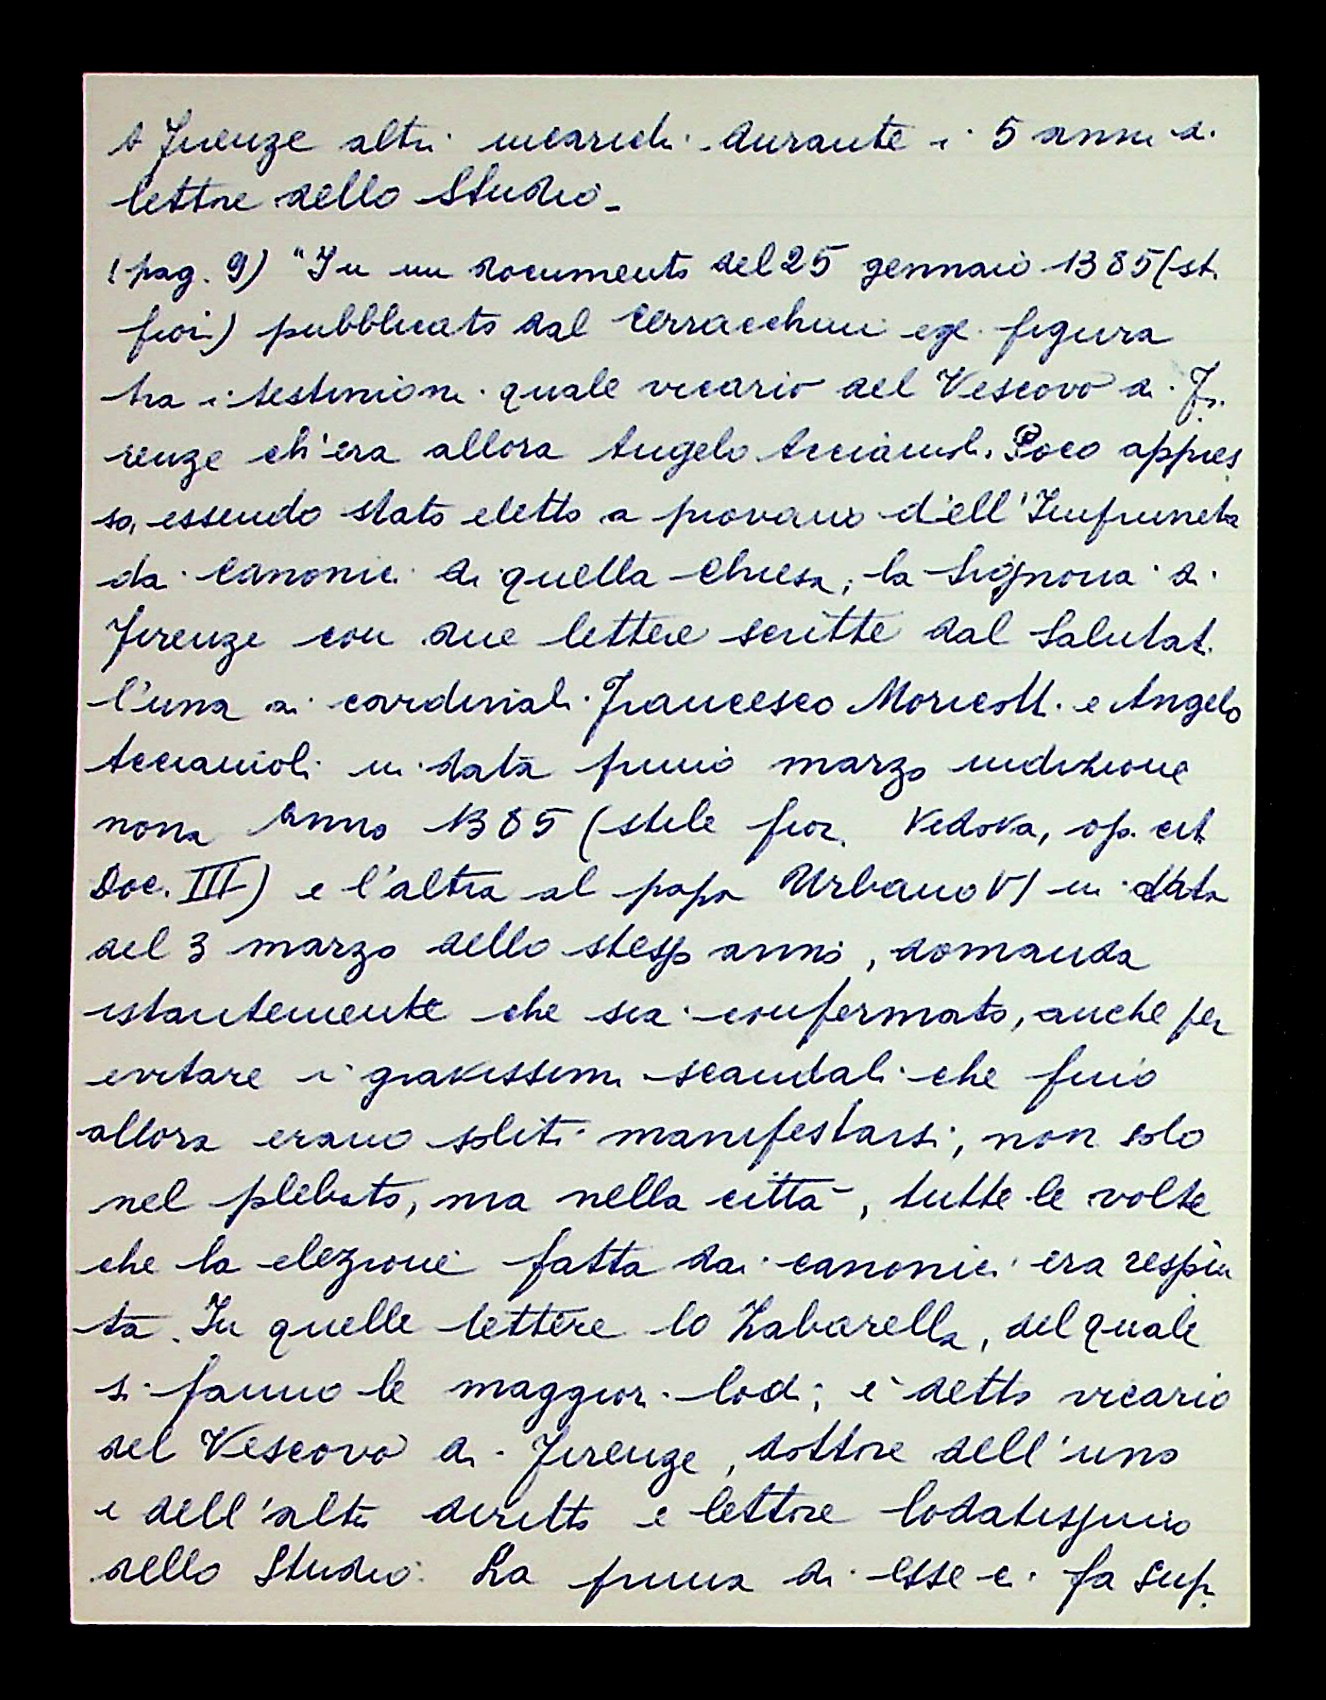 A Firenze altri incarichi durante i 5 anni di
lettore dello Studio -
(pag. 9) "In un documento del 25 gennaio 1385 (st.
fior.) pubblicato dal Cerracchini egli figura
tra i testimoni quale vicario del Vescovo di Fi-
renze ch'era allora Angelo Acciaiuoli. Poco appres
so, essendo stato eletto a piovano dell'Impruneta
dai Canonici di quella Chiesa, la Signoria di
Firenze con due lettere scritte dal Salutati
l'una ai cardinali Francesco Moricotti e Angelo
Acciaiuoli in data primo marzo indizione
nona Anno 1385 (stile fior. Vedova, op. cit.
Doc. III) e l'altra al papa Urbano VI in data
del 3 marzo dello stesso anno, domanda
istantemente che sia confermato, anche per
evitare i gravissimi scandali che fino
allora erano soliti manifestarsi, non solo
nel plebato, ma nella città, tutte le volte
che la elezione fatta dai canonici era respin
ta. In quelle lettere lo Zabarella, del quale
si fanno le maggiori lodi, è detto vicario
del Vescovo di Firenze, dottore dell'uno
e dell'altro diritto e lettore lodatissimo
dello Studio. La prima di esse ci fa sup.